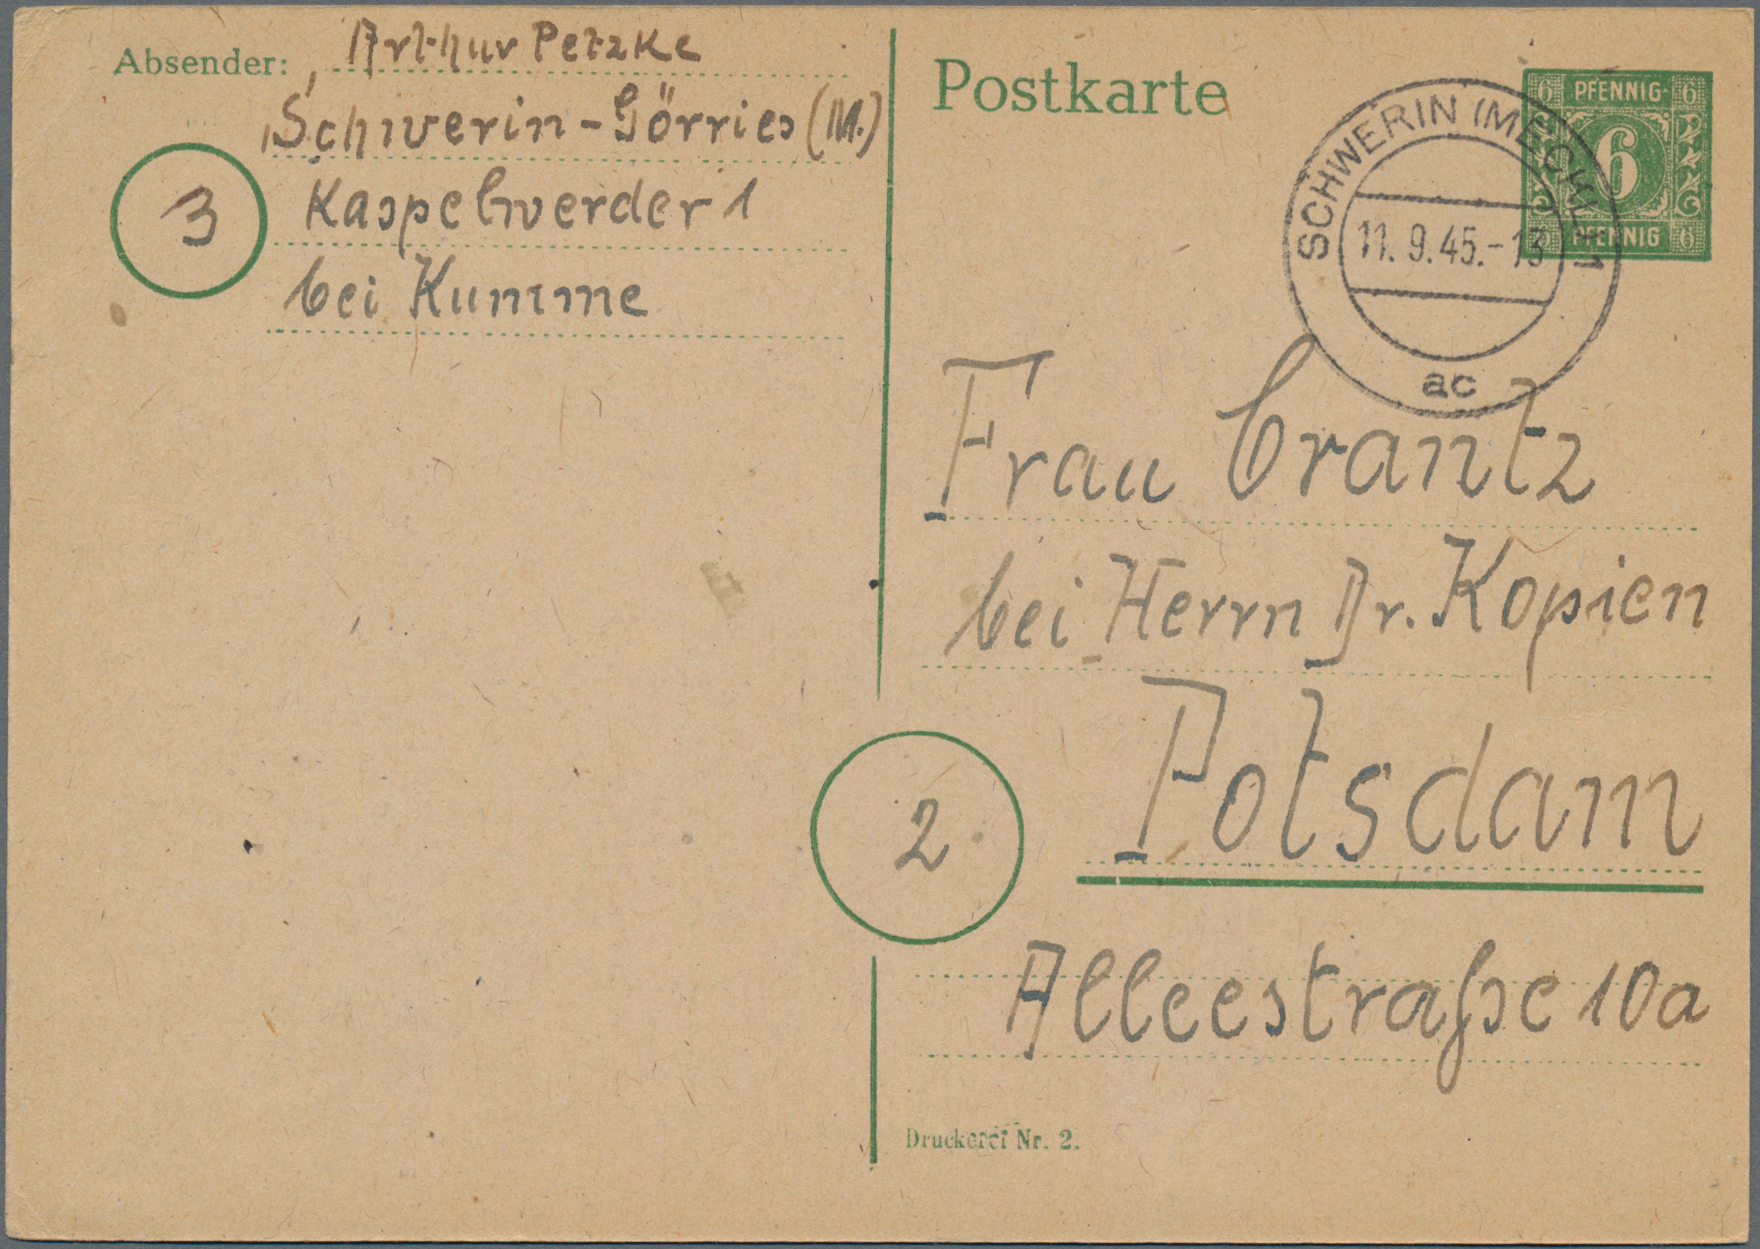 Absender: Arthur Petzke
Schwerin-Görries (M.)
3
Kaspelwerder 1
bei Kumme
Postkarte
6 PFENNIG 6
6
6 PFENNIG 6
SCHWERIN (MECKL) 1
11. 9. 45. - 13
ac
Frau Crantz
bei Herrn Dr. Kopien
2
Potsdam
Alleestraße 10a
Druckerei Nr. 2.